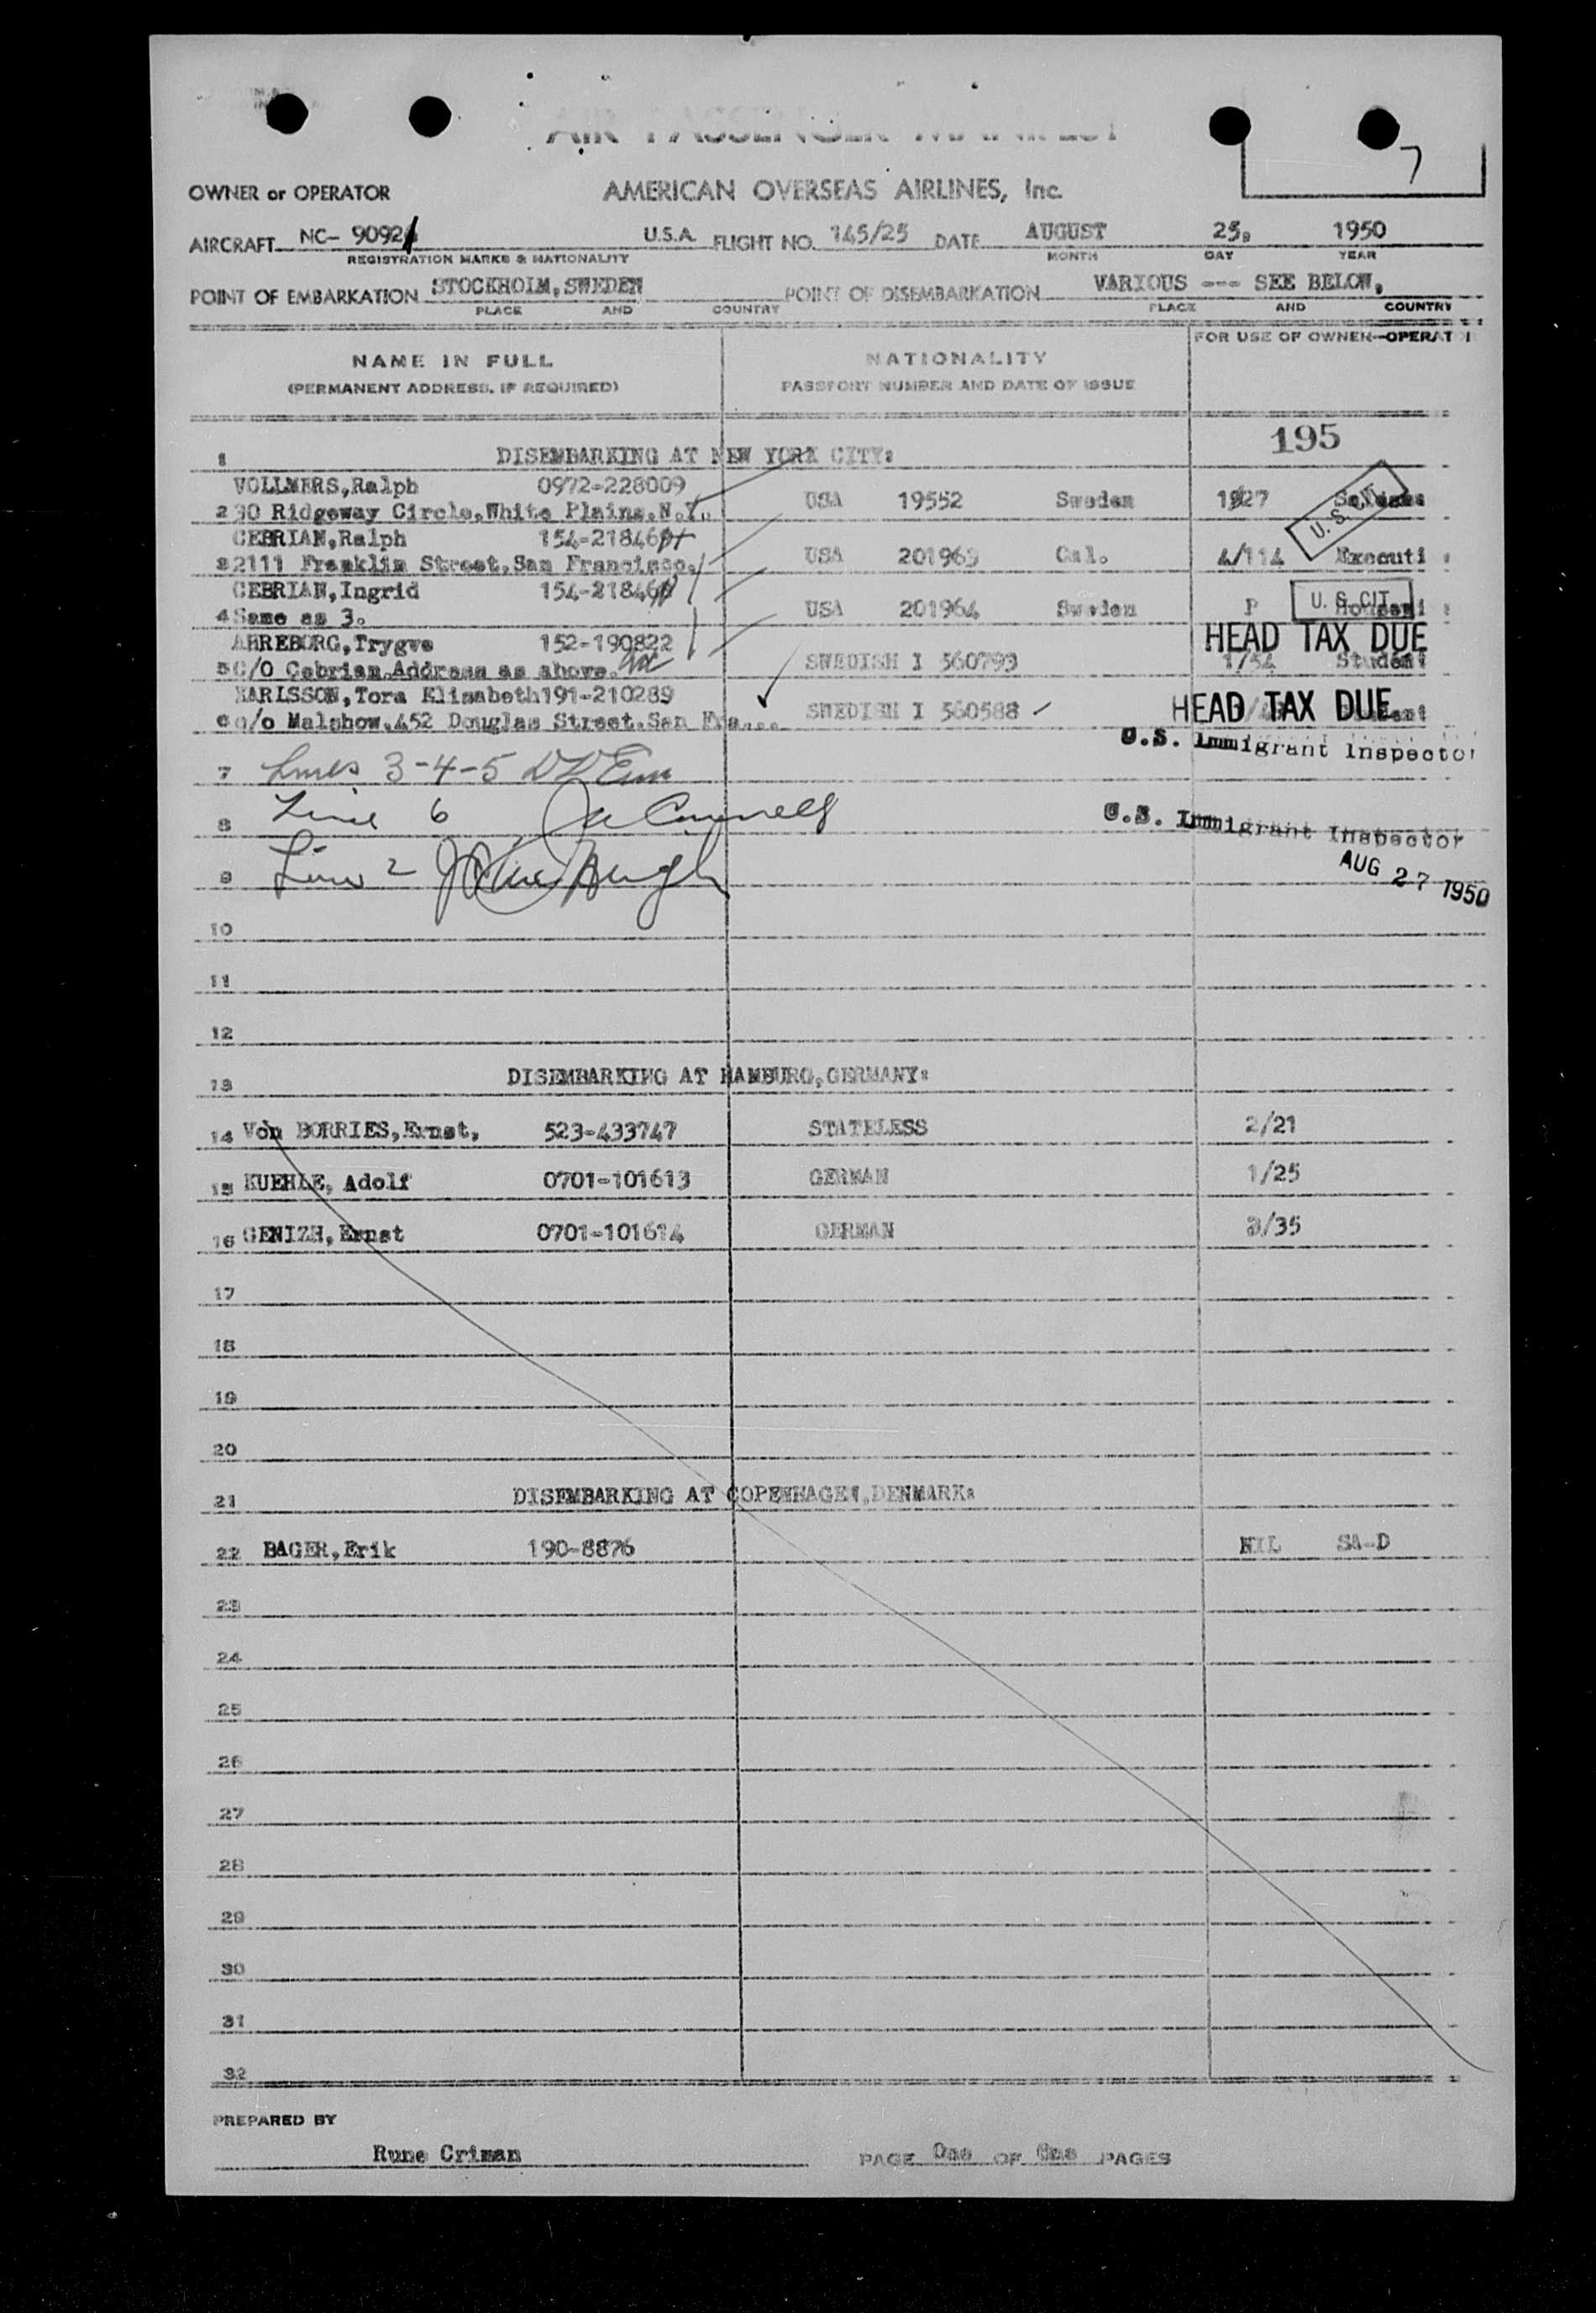 AIR PASSENGER MANIFEST
7
OWNER or OPERATOR AMERICAN OVERSEAS AIRLINES, Inc.
AIRCRAFT NC- 90921 U.S.A. FLIGHT NO. 145/25 DATE AUGUST 25, 1950
REGISTRATION MARKS & NATIONALITY MONTH DAY YEAR
POINT OF EMBARKATION STOCKHOLM, SWEDEN POINT OF DISEMBARKATION VARIOUS --- SEE BELOW,
PLACE AND COUNTRY PLACE AND COUNTRY
NAME IN FULL NATIONALITY FOR USE OF OWNER-OPERAT
(PERMANENT ADDRESS, IF REQUIRED) PASSPORT NUMBER AND DATE OF ISSUE
195
1 DISEMBARKING AT NEW YORK CITY:
VOLLMERS,Ralph 0972-228009 USA 19552 Sweden 1927
2 30 Ridgeway Circle,White Plains,N.Y. U.S. CIT.
CEBRIAN,Ralph 154-21846
3 2111 Franklin Street,San Francisco. USA 201963 Cal. 4/114 Executi
CEBRIAN,Ingrid 154-21846
4 Same as 3. USA 201964 Sweden P U.S. CIT.
HEAD TAX DUE
AHREBORG,Trygve 152-190822
5 C/O Cebrian.Address as above. SWEDISH I 560793 1/54 Student
KARLSSON,Tora Elisabeth 191-210289
6 c/o Malphow.452 Douglas Street.San Fra... SWEDISH I 560588 HEAD TAX DUE
U.S. Immigrant Inspector
7 Lines 3-4-5
8 Line 6
U.S. Immigrant Inspector
9 Line 2
AUG 27 1950
10
11
12
13 DISEMBARKING AT HAMBURG,GERMANY:
14 Von BORRIES,Ernst, 523-433747 STATELESS 2/21
15 KUEHLE, Adolf 0701-101613 GERMAN 1/25
16 GENIZH,Ernst 0701-101614 GERMAN 3/35
17
18
19
20
21 DISEMBARKING AT COPENHAGEN,DENMARK:
22 BAGER,Erik 190-8876 NIL SA-D
23
24
25
26
27
28
29
30
31
32
PREPARED BY
Rune Criman PAGE One OF One PAGES